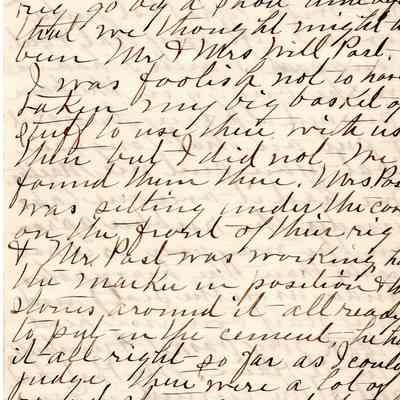 rig go by a short time ago
that we thought might h
been Mr & Mrs Will Past.
I was foolish not to hav
taken my big basket of
stuff to use there with us
then but I did not. We
found them there. Mrs Pas
was sitting under the co
on the front of their rig
& Mr. Past was working, h
the marker in position & th
stones around it all ready
to put in the cement, he ha
it all right so far as I coul
judge, there were a lot of